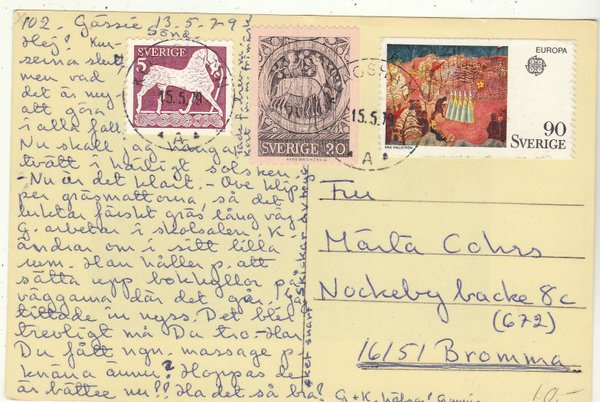 102. Gässie 13.5.79
Sönd.
Hej! Kur-
serna slut
men vad
det är mys
att göra
i alla fall.
Nu skall jag hänga
tvätt i härligt solsken.
- Nu är det klart. - Ove klip-
per gräsmattorna, så det
luktar färskt gräs lång väg.
G. arbetar i skolsalen. K.
ändrar om i sitt lilla
rum. Han håller p. att
sätta upp bokhyllor på
väggarna där det går. Jag
tittade in nyss. Det blir
trevligt må Du tro. - Har
Du fått ngn. massage p.
knäna ännu? Hoppas det
är bättre nu!! Ha det så bra!
G + K. hälsar!
SVERIGE
5
15.5.79
SVERIGE 20
15.5.79
A
EUROPA
90
SVERIGE
Fru
Märta Cohrs
Nockeby backe 8c
(672)
16151 Bromma
10:-